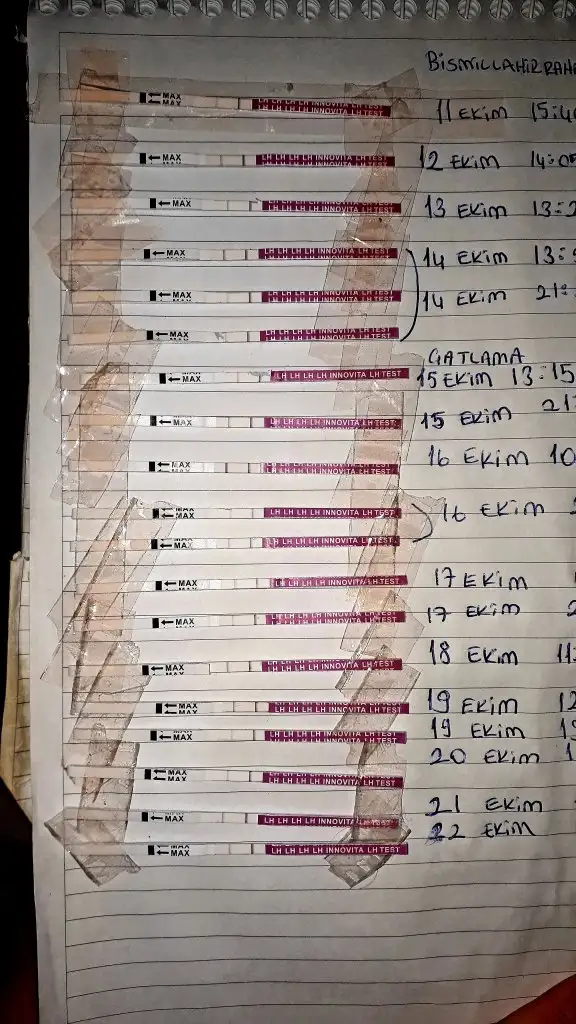 BİSMİLLAHİRRAH
MAX LH LH LH LH INNOVITA LH TEST 11 EKİM 15:4
MAX LH LH LH LH INNOVITA LH TEST 12 EKİM 14:05
MAX LH LH LH LH INNOVITA LH TEST 13 EKİM 13:2
MAX LH LH LH LH INNOVITA LH TEST 14 EKİM 13:
MAX LH LH LH LH INNOVITA LH TEST 14 EKİM 21:
MAX LH LH LH LH INNOVITA LH TEST
ÇATLAMA
MAX LH LH LH LH INNOVITA LH TEST 15 EKİM 13:15
MAX LH LH LH LH INNOVITA LH TEST 15 EKİM 21
MAX LH LH LH LH INNOVITA LH TEST 16 EKİM 10
MAX LH LH LH LH INNOVITA LH TEST 16 EKİM
MAX LH LH LH LH INNOVITA LH TEST
MAX LH LH LH LH INNOVITA LH TEST 17 EKİM
MAX LH LH LH LH INNOVITA LH TEST 17 EKİM 2
MAX LH LH LH LH INNOVITA LH TEST 18 EKİM 11:
MAX LH LH LH LH INNOVITA LH TEST 19 EKİM 12
MAX LH LH LH LH INNOVITA LH TEST 19 EKİM 19
MAX LH LH LH LH INNOVITA LH TEST 20 EKİM 1
MAX LH LH LH LH INNOVITA LH TEST 21 EKİM
MAX LH LH LH LH INNOVITA LH TEST 22 EKİM